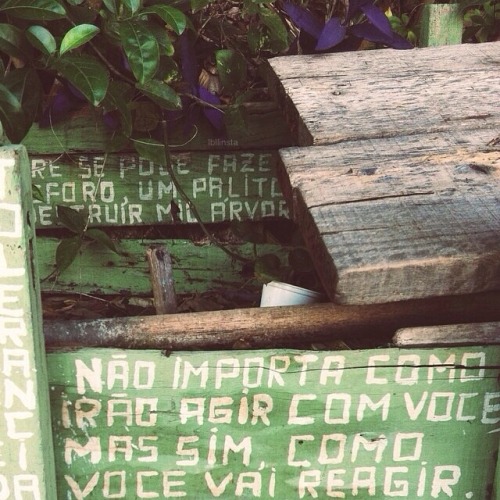 lbllinsta
RE SE PODE FAZE
FORO, UM PALITO
E TRUIR MIL ARVOR
TOLERANCI
DA
NÃO IMPORTA COMO
IRÃO AGIR COM VOCE
MAS SIM, COMO
VOCE VAI REAGIR.